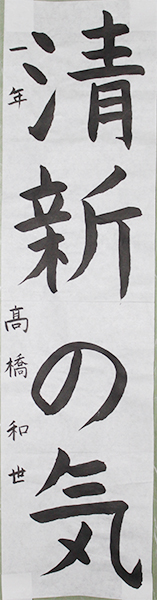 清新の気
一年 髙橋和世